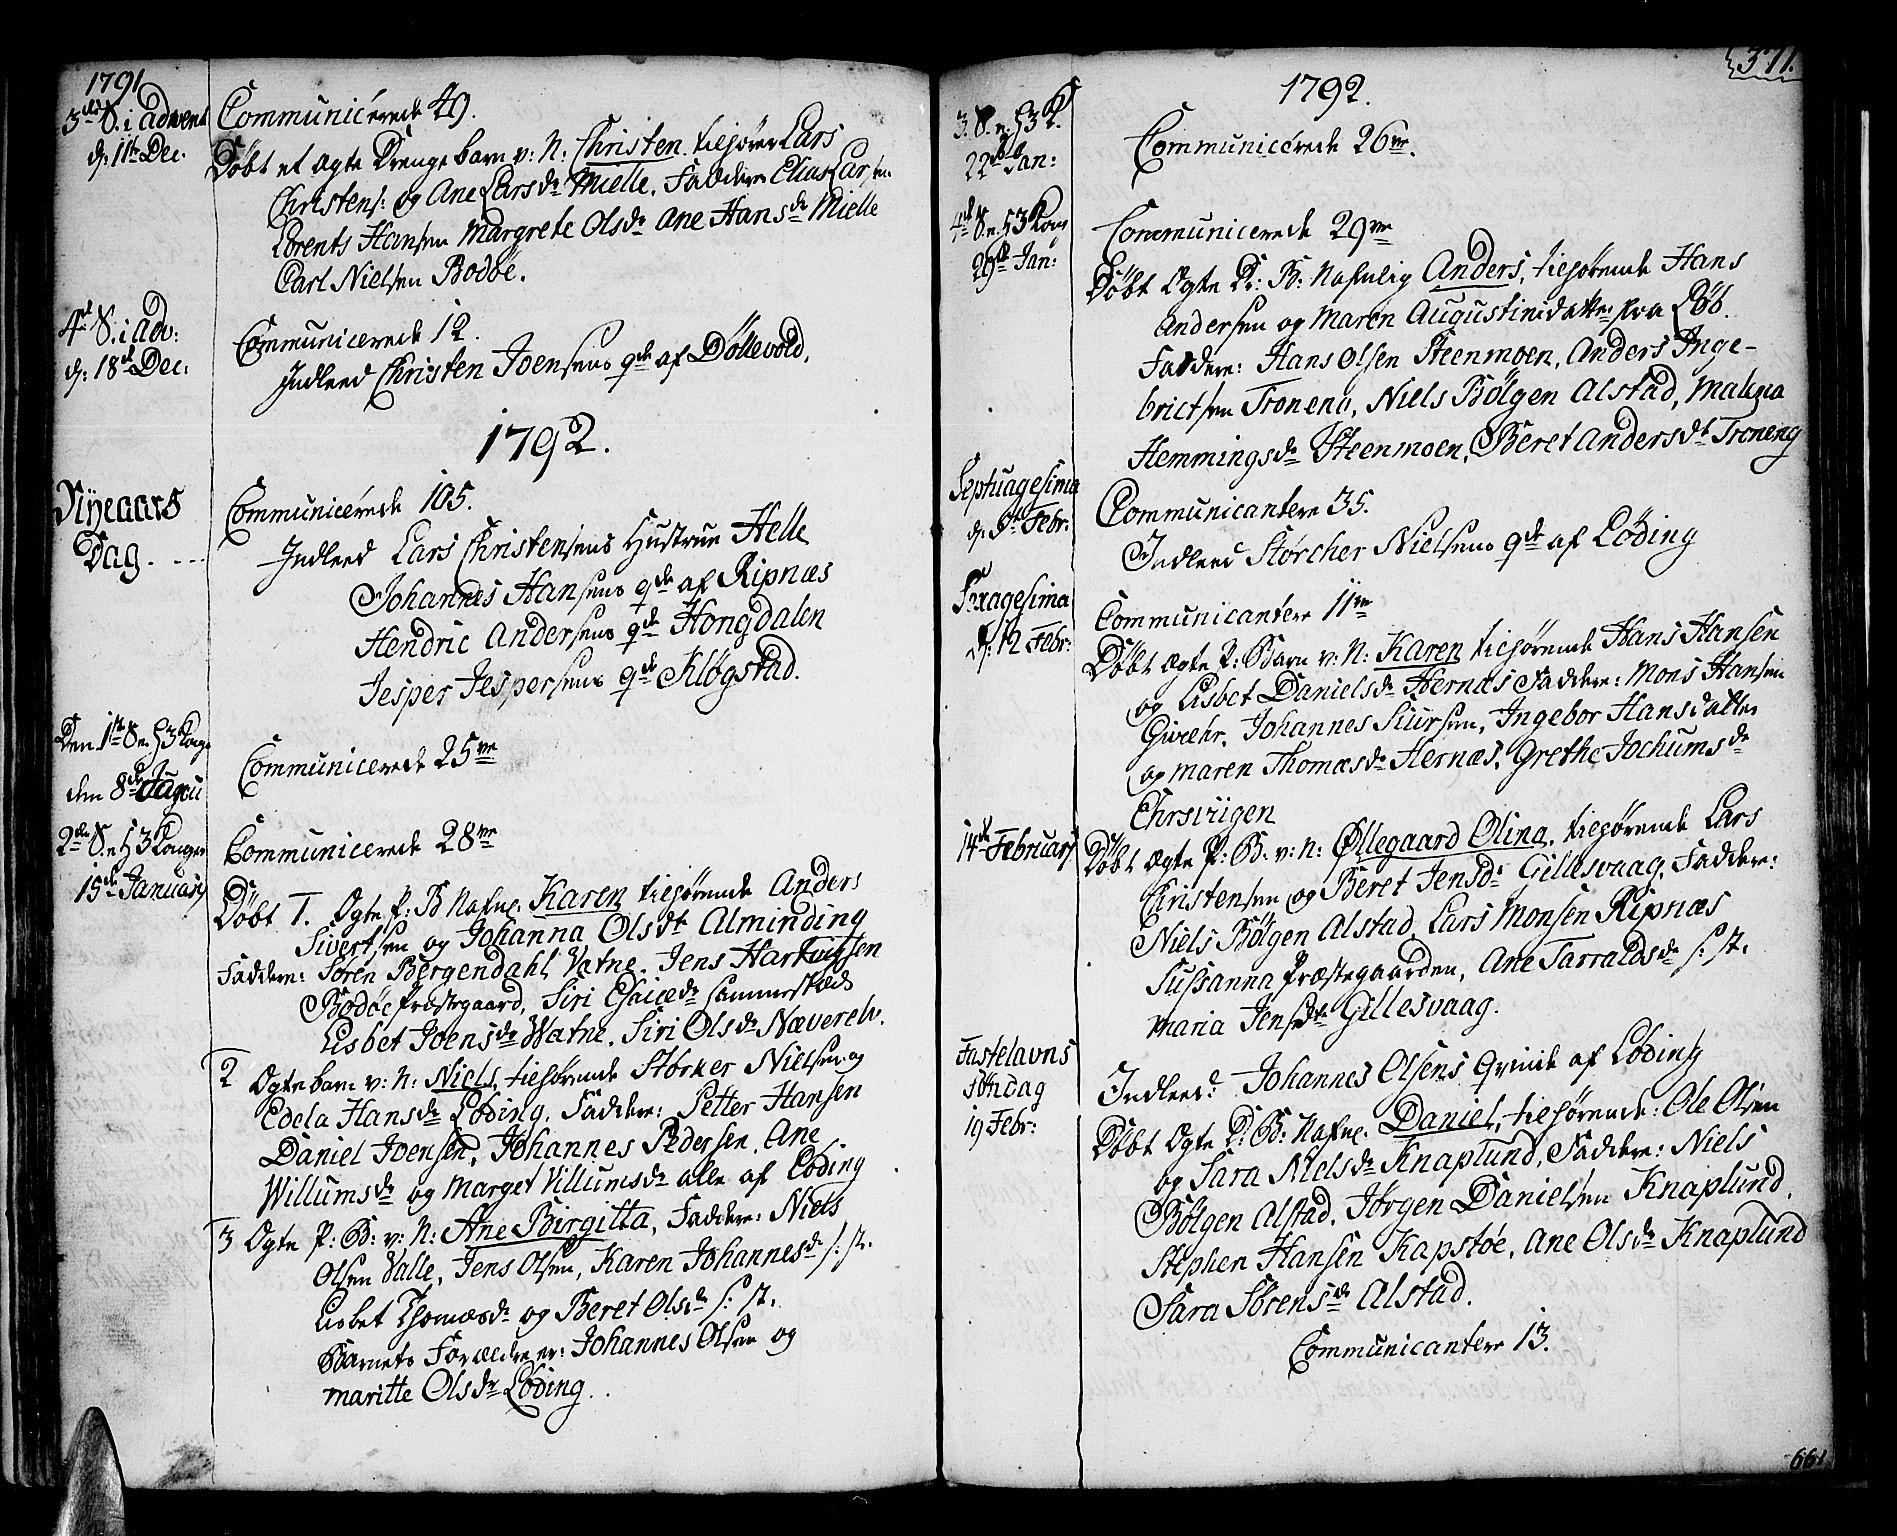 1791
3de S. i Advent
d: 11te Dec.
Communicerede 49.
Döbt et Ægte Drenge barn v: N: Christen tilhører Lars
Christens: og Ane Larsdr Mielle. Faddere Elias Larsen
Lorents Hansen Margrete Olsdr Ane Hansdr Mielle
Carl Nielsen Bodöe.
4de S. i Adv:
d: 18de Dec:
Communicerede 12.
Indleed Christen Joensens qde af Döllevold.
1792.
Nyeaars
Dag. ...
Communicerede 105.
Indleed Lars Christensens Hustrue Helle
Johannes Hansens qde af Ripnæs
Hendric Andersens qde Hongdalen
Jesper Jespersens qde Kløgstad.
Den 1te S. e. H 3 Konge
den 8de
Communicerede 25ve
2den S. e. H 3 Konger
15de January
Communicerede 28ve
Döbt 1. Ægte P: B Nafnl. Karen tilhørende Anders
Sivertsen og Johanna Olsdr Alminding
Faddere: Sören Bergendahl Vatne. Jens Hartvigsen
Bodöe Præstegaard, Siri Esaiædr sammesteds
Lisbet Joensdr Watne. Siri Olsdr Næverelv.
2 Ægte barn v: N: Niels, tilhørende Störker Nielsen og
Edela Hansdr Löding. Faddere: Petter Hansen
Daniel Joensen, Johannes Pedersen. Ane
Willumsdr og Marget Villumsdr alle af Löding
3 Ægte P: B: v: N: Ane Birgitta, Faddere: Niels
Olsen Valle, Jens Olsen, Karen Johannesdr s: st.
Lisbet Thomæsdr og Beret Olsdr s: st.
Barnets Forældre er: Johannes Olsen og
Maritte Olsdr Löding.
371.
1792.
3. S. e. H 3 K.
22de Jan:
Communicerede 26ve.
4de S. e. H 3 Kong
29de Jan:
Communicerede 29ve
Döbt Ægte D: B: Nafnlig Anders, tilhørende Hans
Andersen og Maren Augustinidatter fra Löb.
Faddere: Hans Olsen Steenmoen, Anders Inge-
brictsen Troneng, Niels Bölgen Alstad, Malena
Hemmingsdr Steenmoen, Beret Andersdr Troneng
Septuagesima
d: 5te Febr:
Communicantere 35.
Indleed Störcher Nielsens qde af Löding
Sexagesima
d: 12 Febr:
Communicantere 11ve
Döbt Ægte P: Barn v: N: Karen tilhørende Hans Hansen
og Lisbet Danielsdr Hernæs Faddere: Mons Hansen
Givæhr. Johannes Siursen, Ingebor Hansdatter
og Maren Thomæsdr Hernæs, Grethe Jochumsdr
14de February
Döbt Ægte P: B. v: N: Øllegaard Olina, tilhørende Lars
Christensen og Beret Jensdr Gillesvaag, Faddere:
Niels Bölgen Alstad, Lars Monsen Ripnæs
Susanna Præstegaarden, Ane Tarraldsdr s: st.
Maria Jensdr Gillesvaag.
Fastelavns
söndag
19 Febr:
Indleed: Johannes Olsens Qvinde af Löding
Döbt Ægte D: B: Nafnl. Daniel, tilhørende: Ole Olsen
og Sara Nielsdr Knaplund, Faddere: Niels
Bölgen Alstad, Jörgen Danielsen Knaplund,
Stephen Hansen Kapstöe, Ane Olsdr Knaplund
Sara Sörensdr Alstad.
Communicantere 13.
661